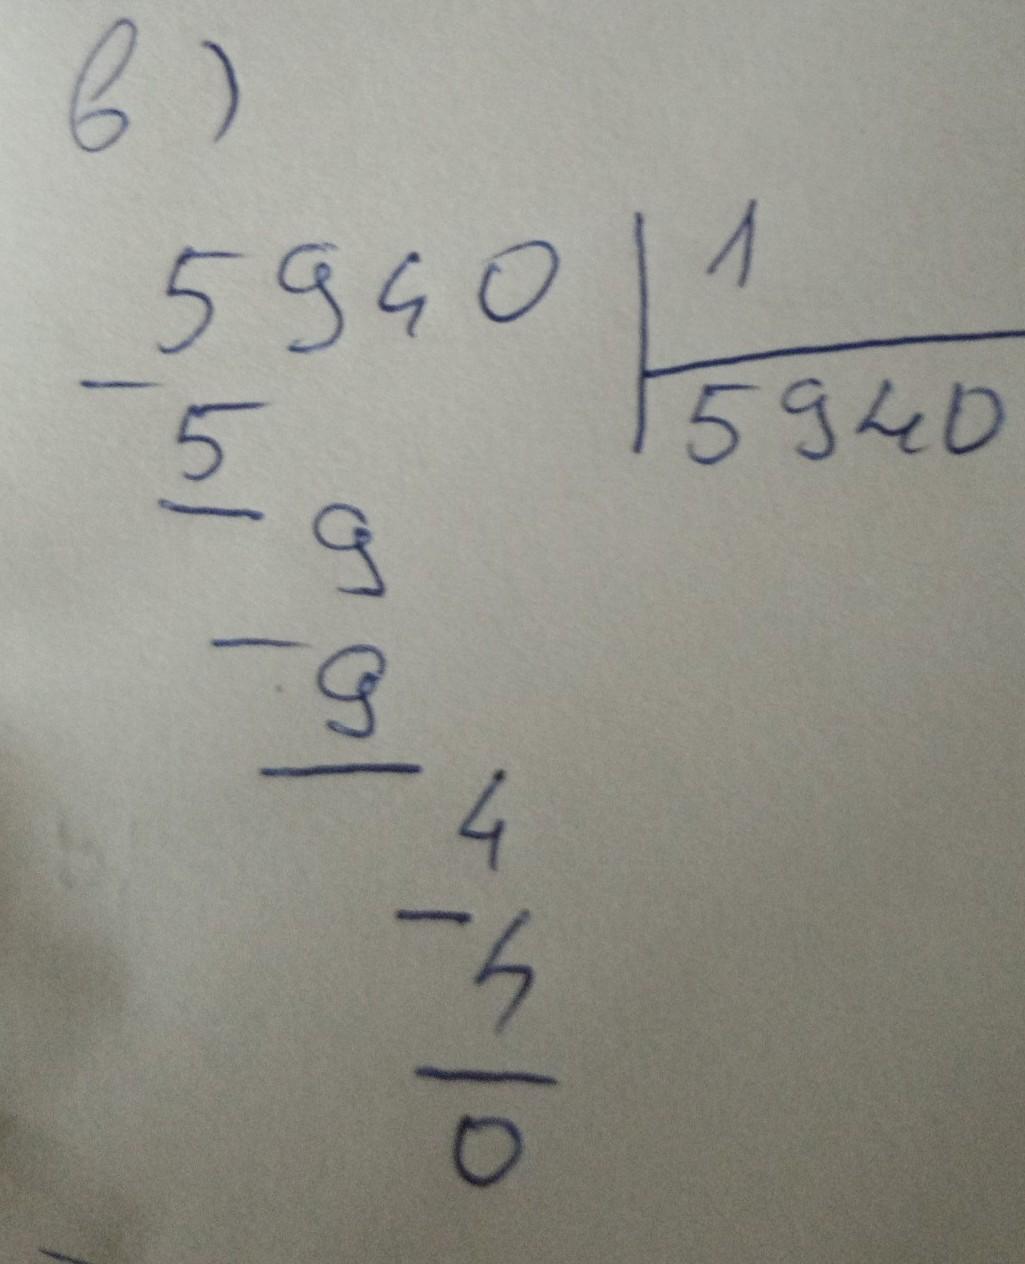 в)
5940 | 1
- 5 | 5940
9
- 9
4
- 4
0